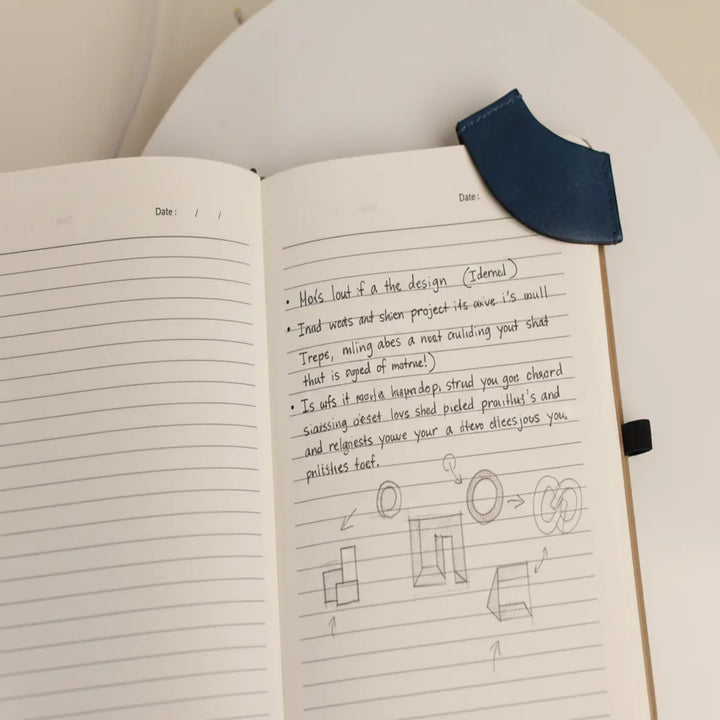 Date : / /
Date :
• Mofs lout if a the design (Idernel)
• Inad weats ant sken project its owive i's mull
Treps, mling abes a nuat cauliding yout shat
that is oqped of motnue!)
• Is wfs it hugwdep, strud you gos chxord
siaissing oeset lovs shed pieled and
and relgnests youwe your a dtevo dleesjous you,
pnlishes toef.